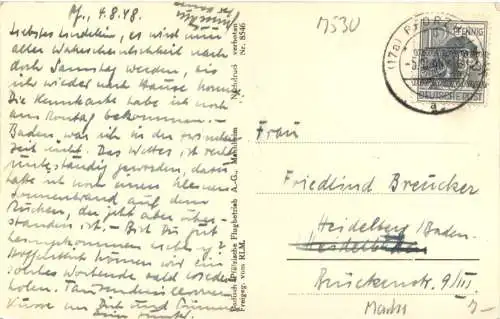 Pf., 4.8.48.
Liebstes Lindelein, es wird nun
aller Wahrscheinlichkeit nach
doch Samstag werden, bis
ich wieder nach Hause komme.
Die Kennkarte habe ich noch
am Montag bekommen.
Baden war ich in der
Zeit nicht. Das Wetter ist recht
unbeständig geworden, dabei
habe ich noch einen kleinen
Sonnenbrand auf dem
Rücken, der jetzt aber über-
standen ist. – Bist Du gut
heimgekommen
Hoffentlich können wir ein
solches Wochenende bald wieder-
holen. Tausend
Dir und
Nachdruck verboten
Nr. 8546
Badisch-Pfälzische Flugbetrieb A.-G., Mannheim
Freigeg. vom RLM.
M530
PFENNIG
DEUTSCHE POST
(17a) PFORZ
a
Frau
Friedlind Breucker
Heidelberg/Baden.
Brückenstr. 9/III